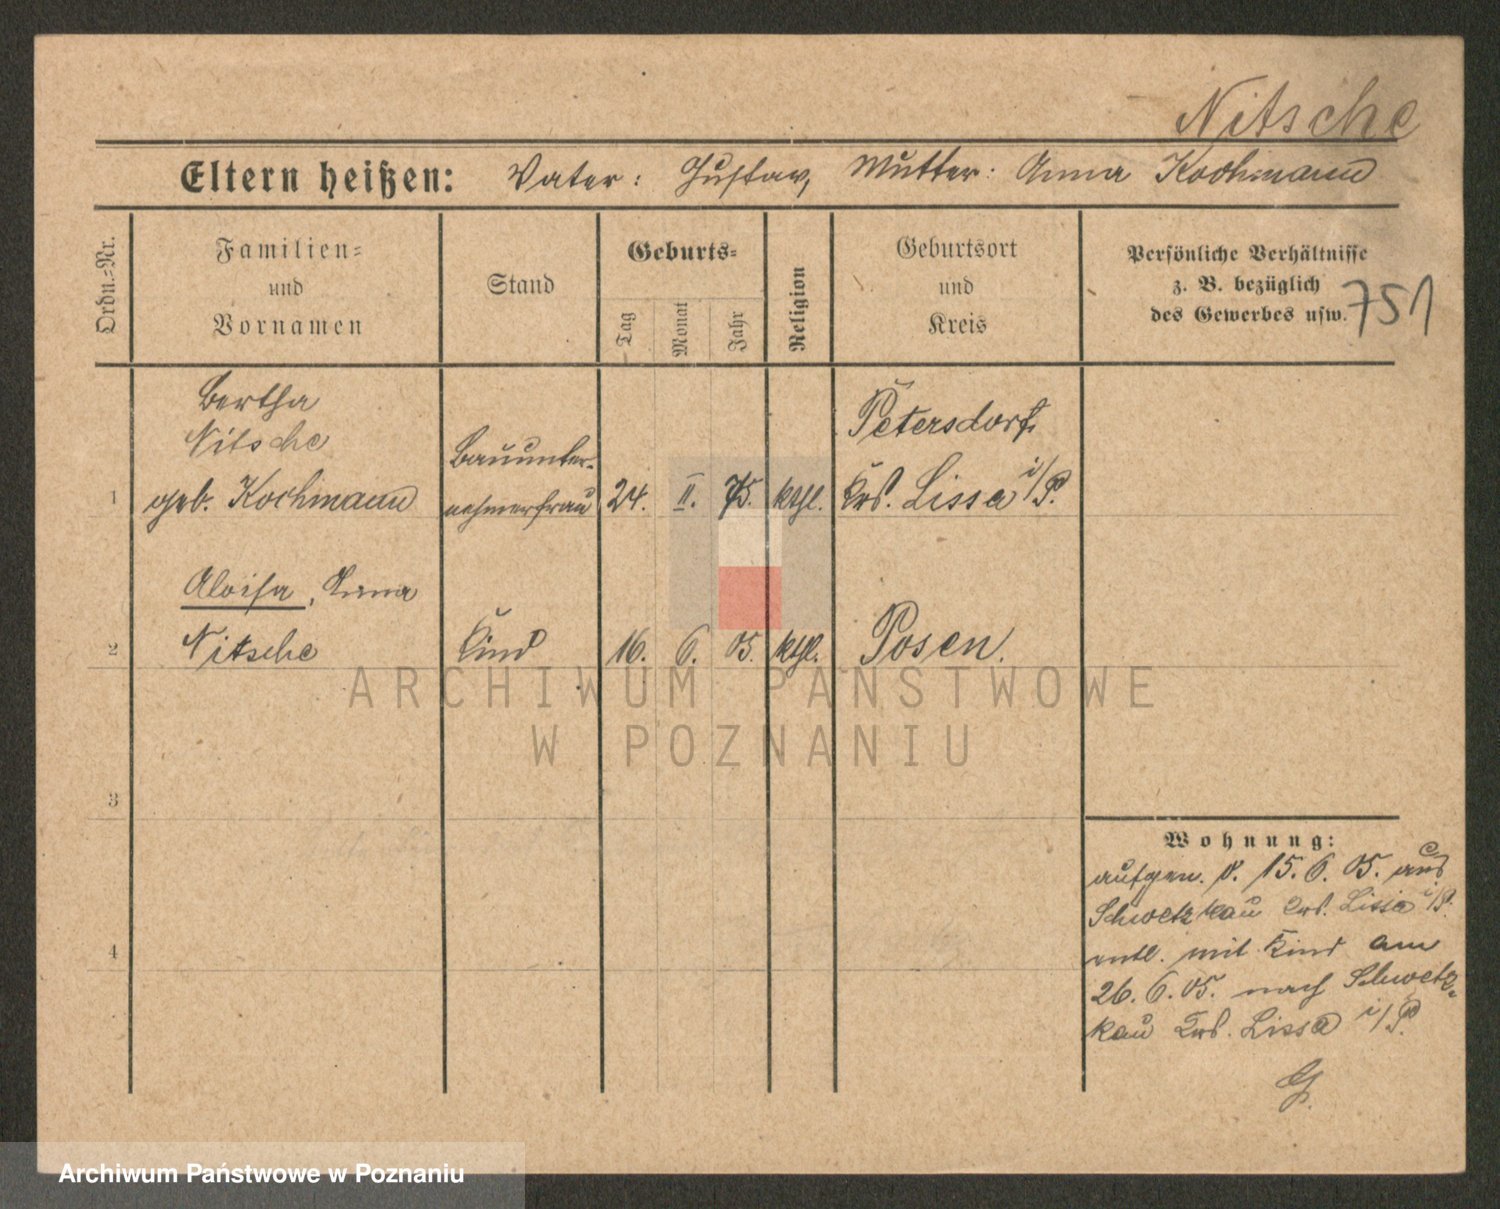 Nitsche
Eltern heißen: Vater: Gustav, Mutter: Anna Kochmann
Ordn.-Nr.
Familien-
und
Vornamen
Stand
Geburts-
Tag
Monat
Jahr
Religion
Geburtsort
und
Kreis
Persönliche Verhältnisse
z. B. bezüglich
des Gewerbes usw.
751
Bertha
Nitsche
1 geb. Kochmann
Bauunter-
nehmerfrau
24. II. 75. kthl.
Petersdorf
Krs. Lissa i/P.
Aloisa, Anna
2 Nitsche
Kind
16. 6. 05. kthl.
Posen.
3
4
Wohnung:
aufgen. d. 15. 6. 05. aus
Schwetzkau Krs. Lissa i/P.
entl. mit Kind am
26. 6. 05. nach Schwetz-
kau Krs. Lissa i/P.
ARCHIWUM PAŃSTWOWE
W POZNANIU
Archiwum Państwowe w Poznaniu